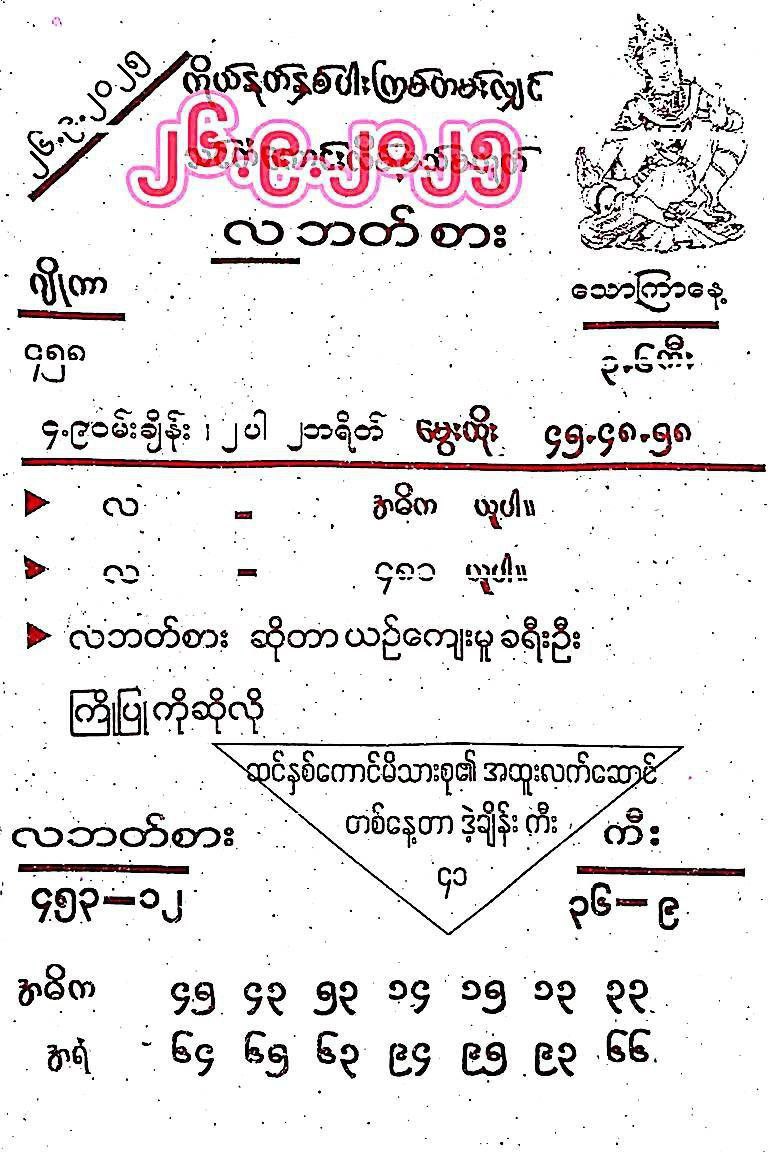 ၂၆.၉.၂၀၂၅
ကိုယ်နုတ်နှစ်ပါးကြမ်တမ်းလျှင်
၂၆.၉.၂၀၂၅
လဘတ်စား
ဂျိုကာ
သောကြာနေ့
၄၅၈
၃.၆ကီး
၄.၉ဝမ်းချိန်း ၊ ၂ပါ ၂ဘရိတ် မွေးထိုး ၄၅.၄၈.၅၈
လ - အဓိက ယူပါ။
လ - ၄၈၁ ယူပါ။
လဘတ်စား ဆိုတာ ယဉ်ကျေးမှု ခရီးဦး
ကြိုပြု ကိုဆိုလို
ဆင်နှစ်ကောင်မိသားစု၏ အထူးလက်ဆောင်
တစ်နေ့တာ ဒဲ့ချိန်း ကီး
၄၁
လဘတ်စား
ကီး
၄၅၃-၁၂
၃၆-၉
အဓိက ၄၅ ၄၃ ၅၃ ၁၄ ၁၅ ၁၃ ၃၃
အရံ ၆၄ ၆၅ ၆၃ ၉၄ ၉၅ ၉၃ ၆၆